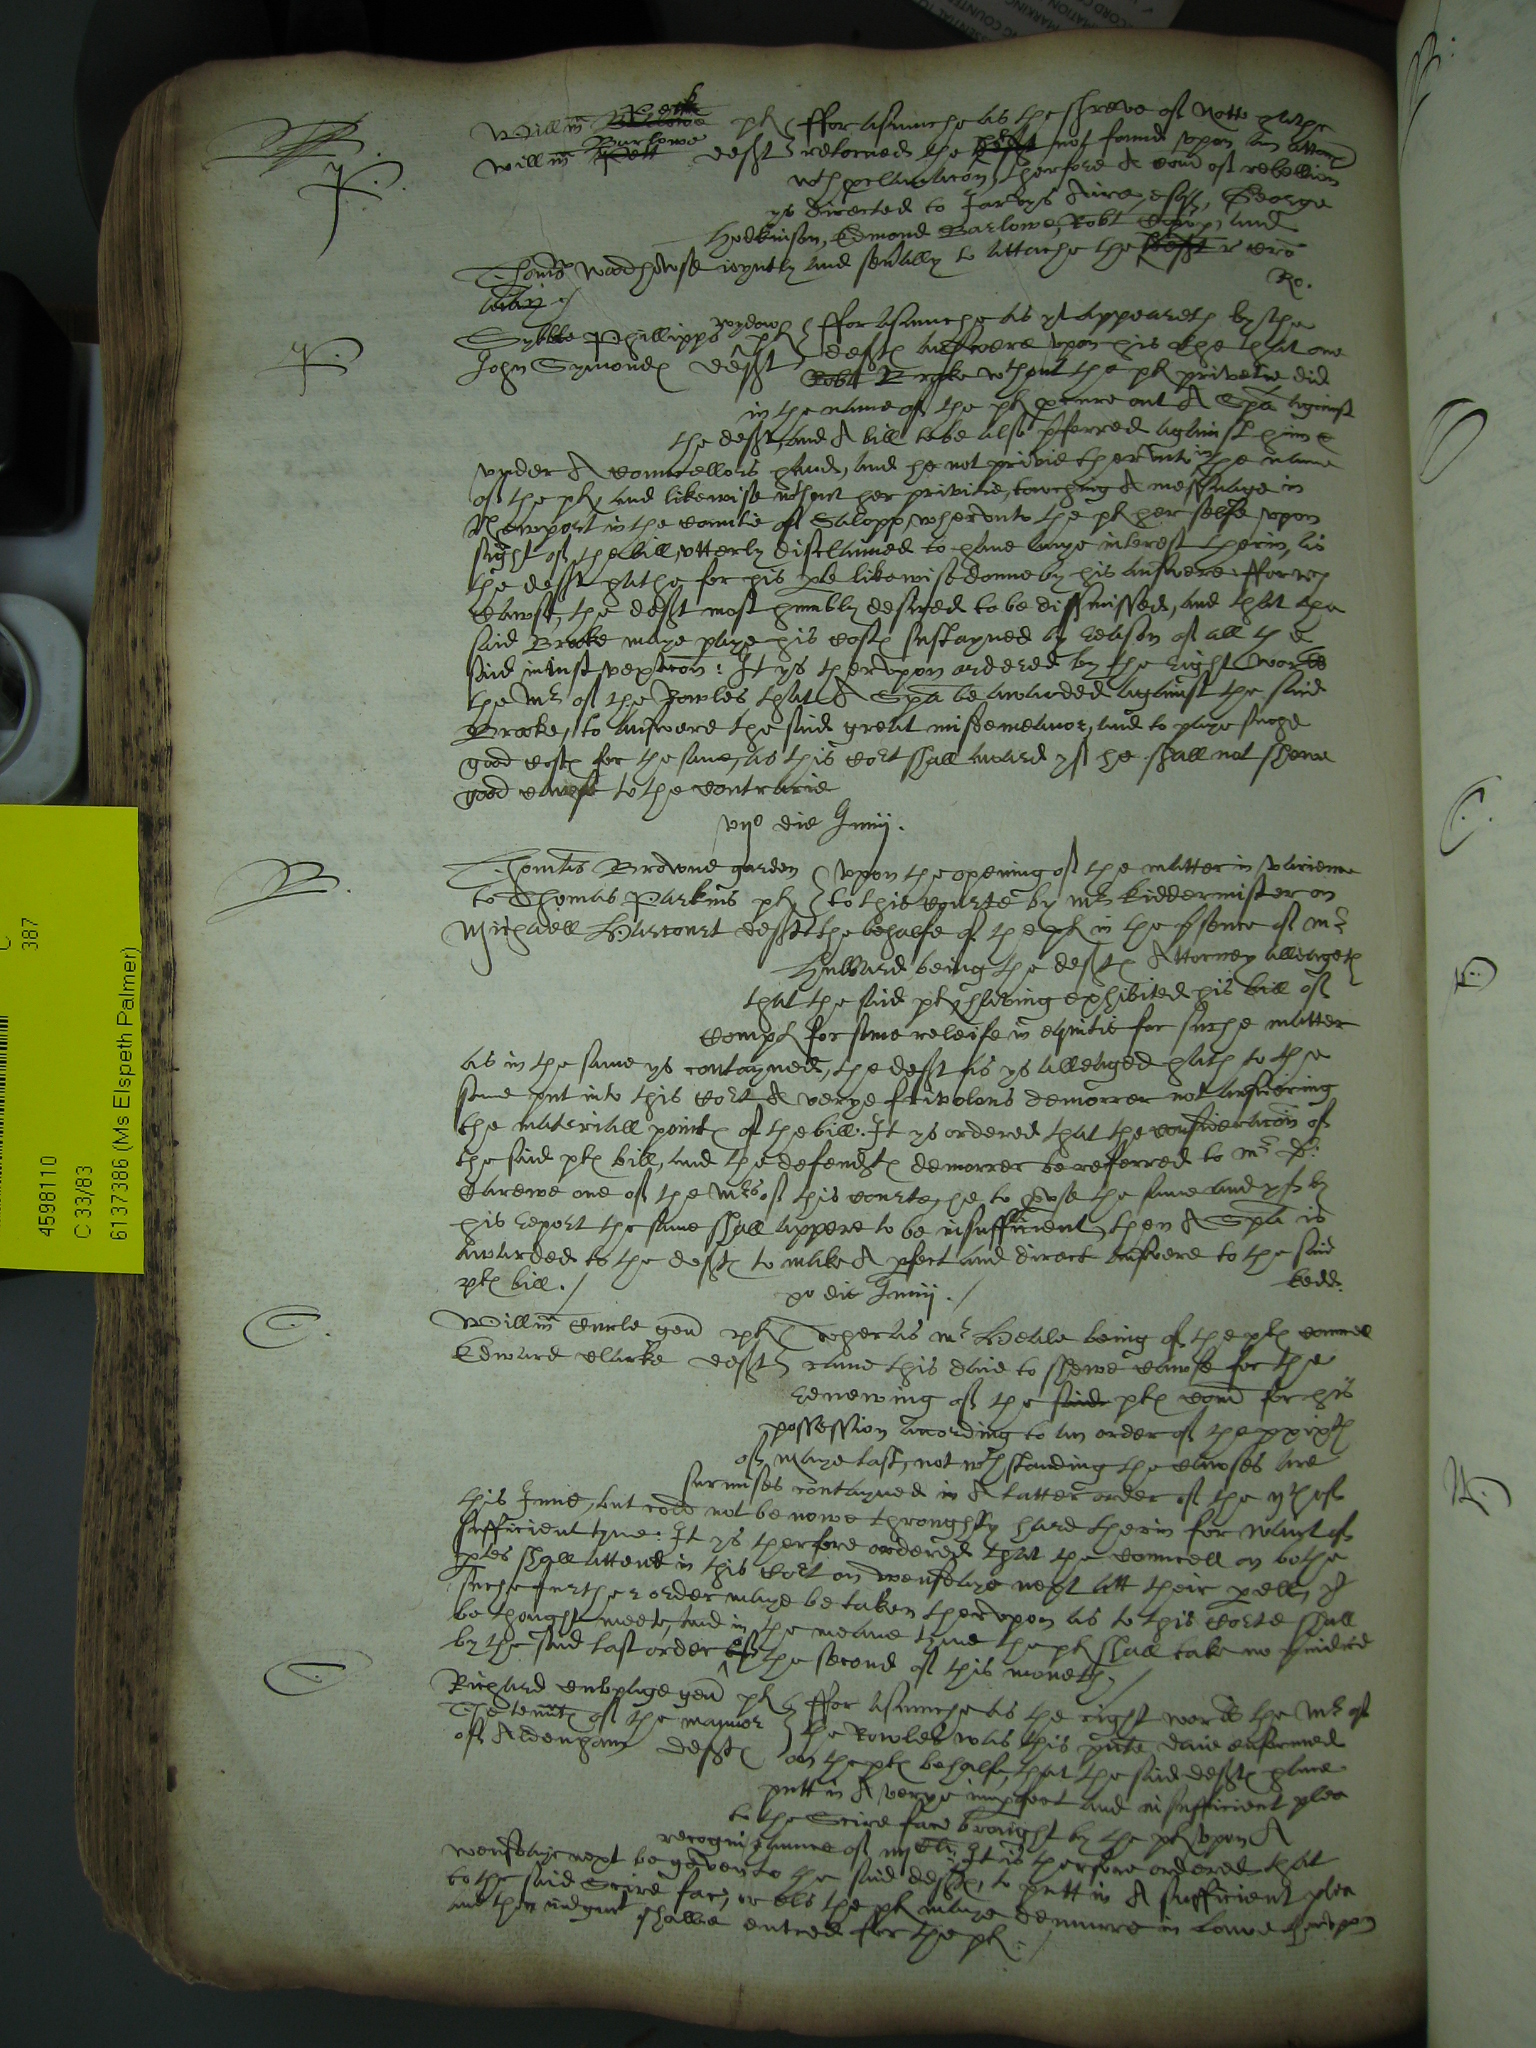 Willm Peck plt ffor asmuche as the shreve of Nott hathe
Willm Barlowe deft retorned the deft not found vpon an attach
wth proclamacon, therfore A Com of rebellion
ys directed to Jarvys Aire, esq, George
Hodkinson, Edmond Barlowe, Robt and
Thoms Woodhowse ioyntly and seually to attache the deft
Ro.
Sybble Phillipps wydow plt ffor asmuche as yt appeareth by the
John Symondes deft deftes answere vpon his othe that one
Robt Brooke wthout the plt privetie did
in the name of the plt procure out A Spa against
the deft, and A bill to be also pferred against him
vnder A Councellors hand, and he not privie thervnto in the name
of the plt, and likewise wthout her privitie, towching A messuage in
Newport in the Countie of Salopp, whervnto the plt her selfe vpon
sight of the bill, vtterly disclaimed to have anye interest therin, as
the deft hathe for his pte likewise donne by his answere: ffor wch
Cawse, the deft most humbly desired to be dissmissed, and that the
said Brooke maye paye his Costes sustayned by reason of all the
said iniust vexacon: It ys thervpon ordered by the right wor
the Mr of the Rowles that A Spa be awarded against the said
Brooke, to answere the said great misdemeanor, and to paye suche
good Costes for the same, as this Cort shall award yf he shall not shewe
good Cawse to the Contrarie
vijo die Junij.
Thomas Browne garden vpon the opening of the matter in variance
to Thomas Parkins plt to this Courte by Mr Kiddermister on
Michaell Harcourt deft the behalfe of the plt in the psence of Mr
Hubbard being the deftes Attorney alleageth
that the said plt having exhibited his bill of
Complt for some releife in equitie for suche matter
as in the same ys contayned, the deft as ys alleaged hath to the
same put into this Cort A verye frivolous demorrer not answering
the materiall pointes of the bill. It ys ordered that the consideracon of
the said ptes bill, and the defendtes demorrer be referred to Mr D:
Carewe one of the Mrs of this Courte, he to pvse the same and yf by
his report the same shall appere to be insufficient, then A Spa is
awarded to the deft to make A pfect and direct answere to the said
ptes bill./
po die Junij./
Willm Curle gen plt Wheras Mr Heale being of the ptes
Edward Clarke deft came this daie to shewe Cawse for the
renewing of the said ptes Com for his
possession according to an order of the
of Maye last, not wthstanding the Cawses are
surmises contayned in A latter order of the of
this June, but cold not be nowe throughly hard therin for want of
sufficient tyme: It ys therfore ordered that the Councell on bothe
ptes shall attend in this Cort on wensdaye next att their pell,
suche further order maye be taken thervpon as to this Corte shall
be thought meete, and in the meane tyme the plt shall take no
by the said last order the second of this moneth./
Richard gen plt ffor asmuche as the right wor the Mr of
The tenntes of the mannor the Rowles was this pnte daie enformed
of Aldenham deftes on the ptes behalfe, that the said deftes have
putt in A verye impfect and insufficient plea
to the Scire fac brought by the plt vpon A
recognizaunce of It is therfore ordered that
wensdaye next be gaven to the said deftes, to putt in A sufficient plea
to the said Scire fac, or els the plt maye demurre in lawe thervpon
and then iudgmt shalbe entred for the plt./
4598110
C 33/83
6137386 (Ms Elspeth Palmer)
C
387